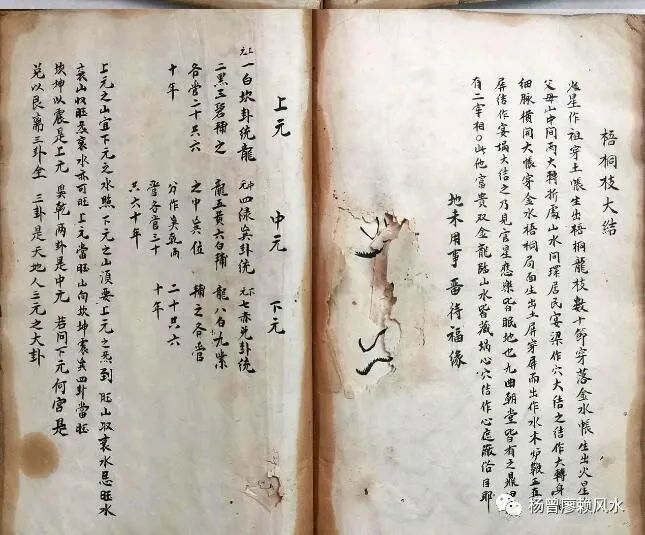 梧桐枝大结
星作祖穿土帳生出梧桐龍枝数十節穿落金水帳生出火星
父母山中间两大轉折處山水同環居民宴梁作穴大结之结作大轉身
细脉横间大帳穿金水梧桐局面生出土屏穿屏而出作水木炉鞍五
屏结作宴塲大结之乃見官星恋樂皆眠地也九曲朝堂皆有之鼎甲
有二宰相〇此他富贵双金龍踏山水皆藏塲心穴结作心庭嚴俗目耶
地未用事畱待福缘
上元
中元
下元
上元一白坎卦统龍
二黑三碧補之
各管二十共六
十年
中元四绿巽卦统
龍五黄六白補
之中巽位
分作巽乾两
管各官三十
共六十年
下元七赤兑卦统
龍八白九紫
補之各管
二十共六
十年
上元之山宜下元之水照下元之山頂要上元之炁到旺山収衰水忌旺水
衰山収旺炁衰水亦可旺上元當旺山向坎坤震巽四卦當旺
坎坤以震是上元巽乾两卦是中元若问下元何宫是
兑以艮离三卦全三卦是天地人三元之大卦
杨曾廖赖风水